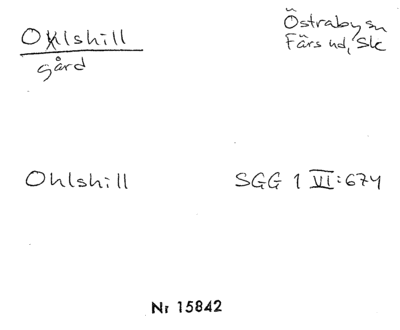 Ohlshill
gård
Östraby sn
Färs hd, Sk
Ohlshill
SGG 1 VI:674
Nr 15842